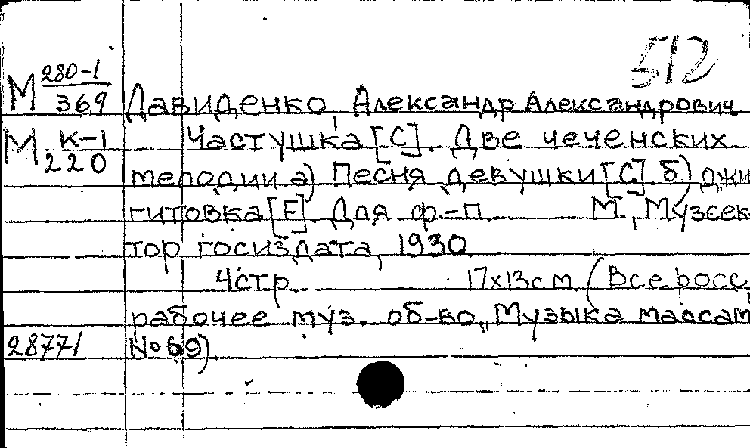 512
М 280-1/369 Давиденко, Александр Александрович
М К-1/220 Частушка [C]. Две чеченских
мелодии а) Песня девушки [C] б) джи
гитовка [F] Для ф-п. М., Музсек
тор госиздата, 1930
4стр. 17x13см (Всеросс.
рабочее муз. об-во, Музыка массам
28771 № 69).